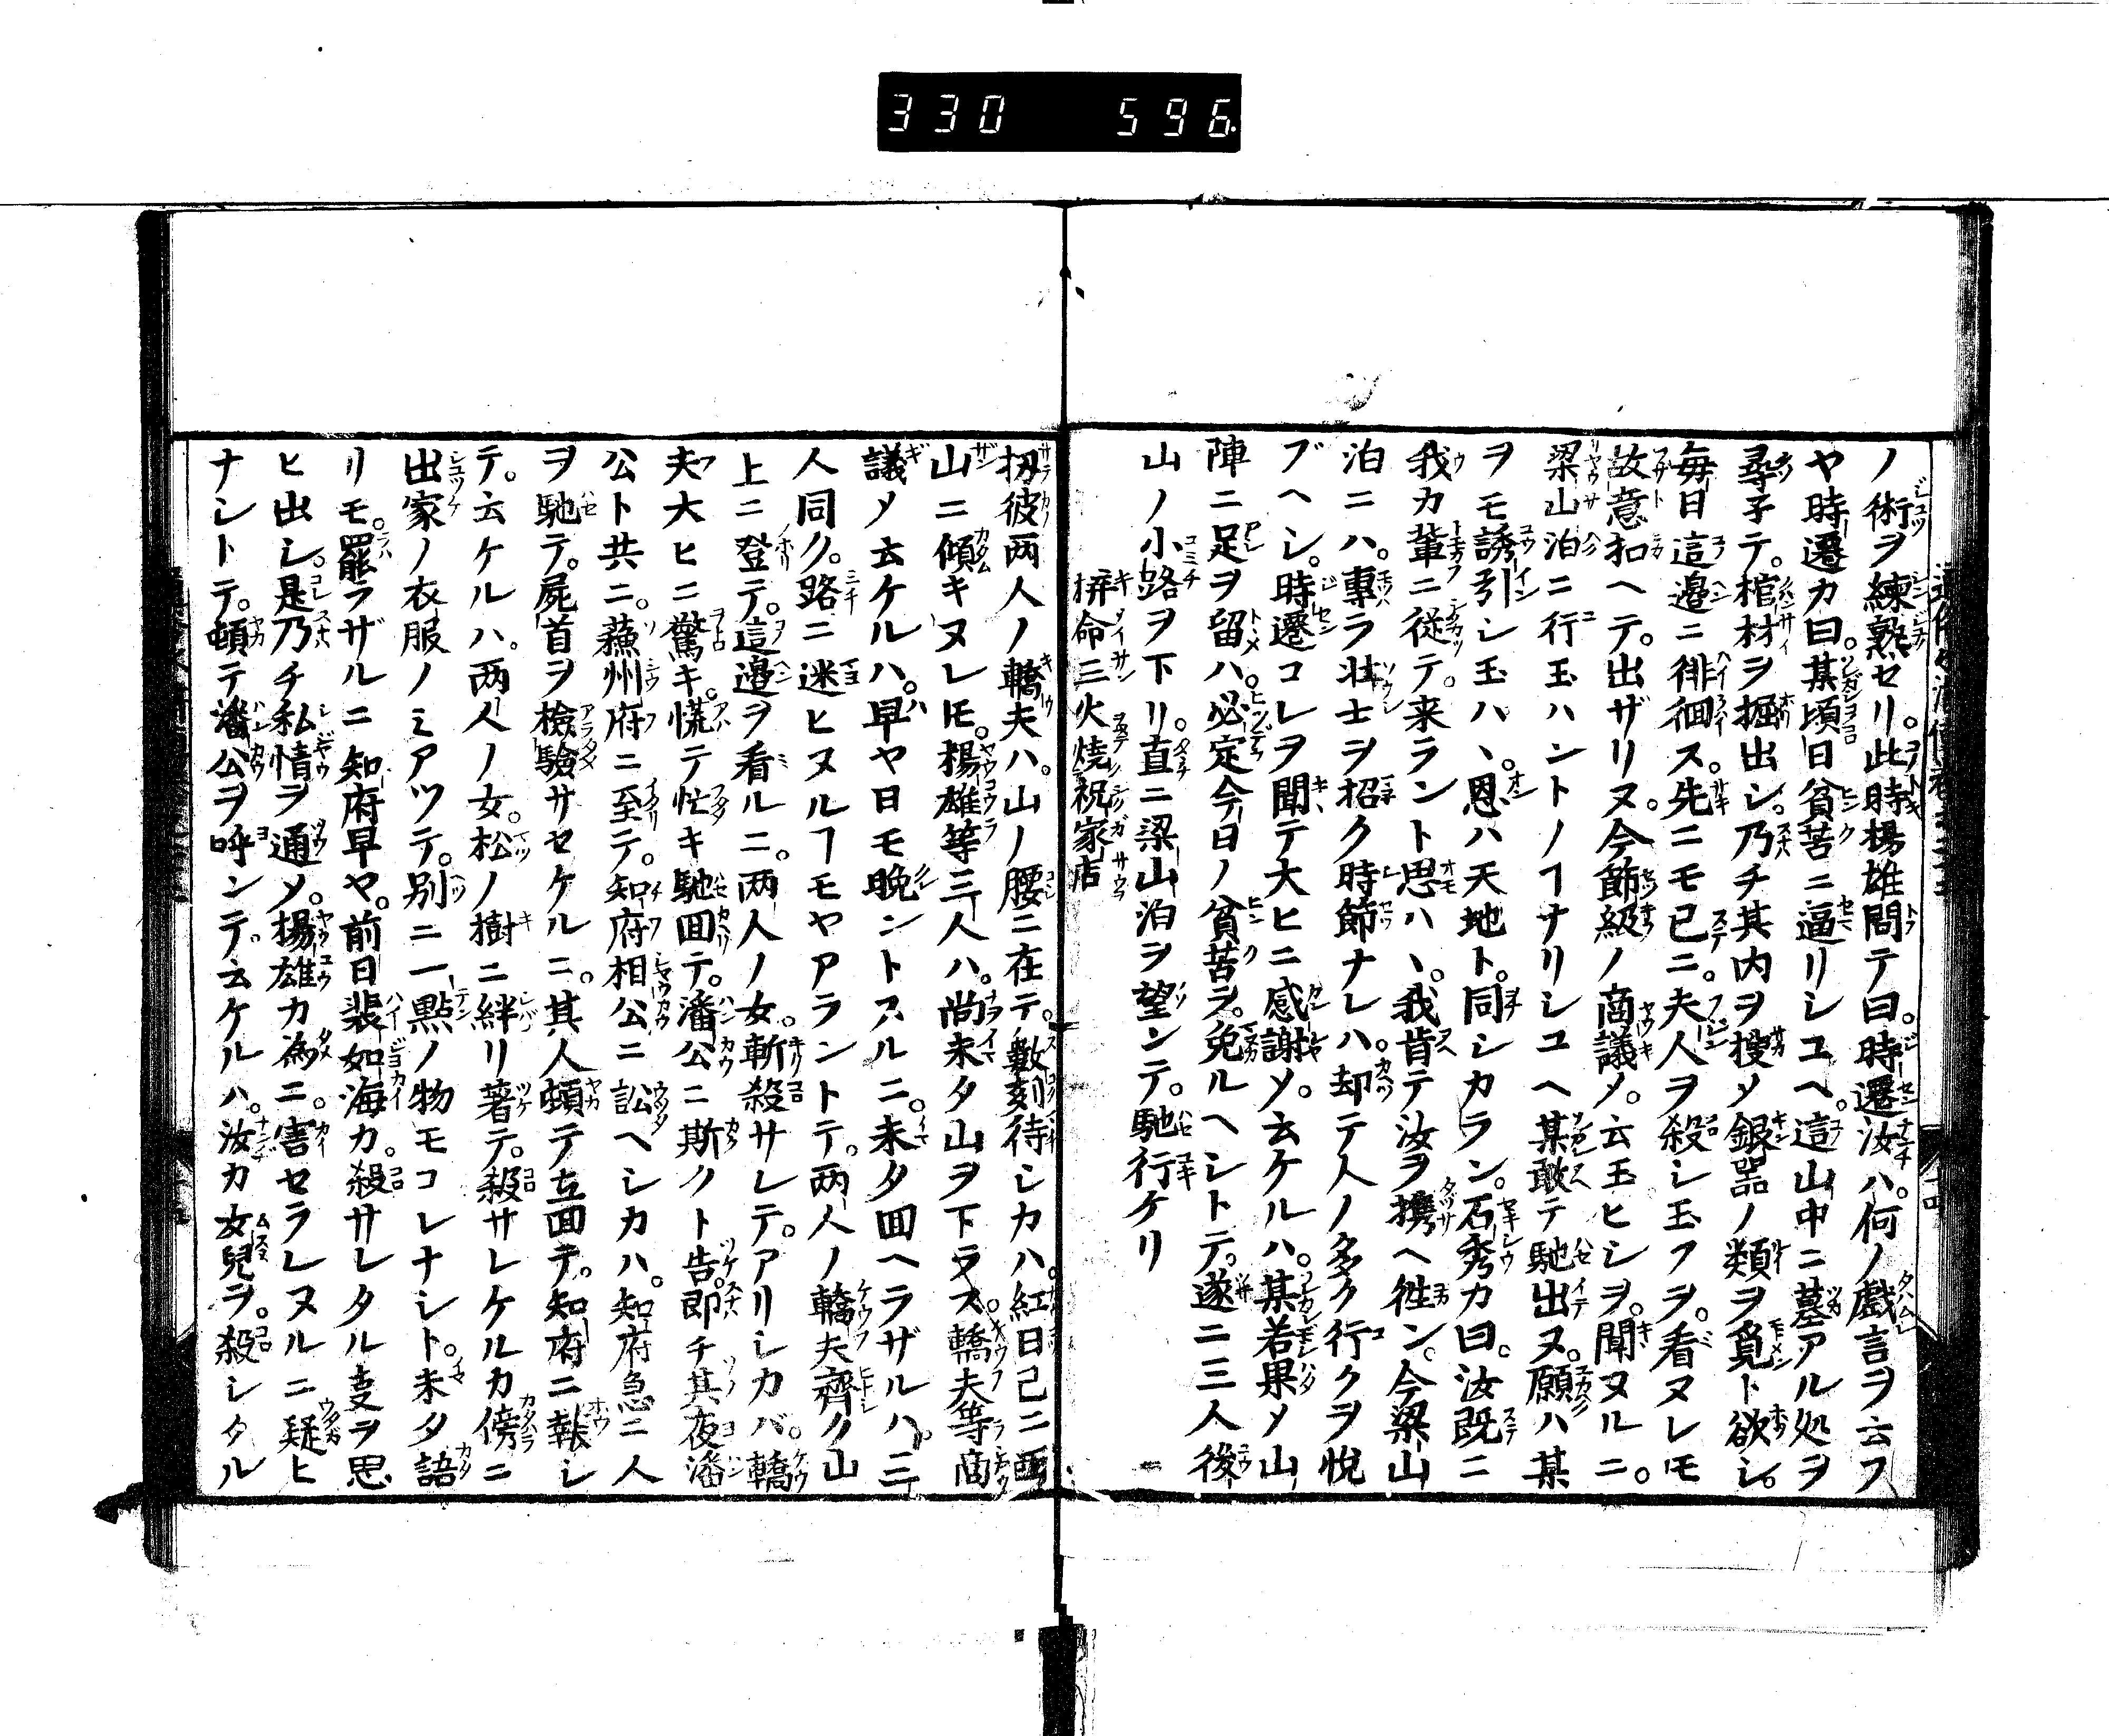 330 596
ノ術ヲ練熟セリ。此時楊雄問テ曰。時遷汝ハ。何ノ戯言ヲ云フ
ヤ時遷カ曰。某頃日貧苦ニ逼リシユヘ。這山中ニ墓アル処ヲ
尋子テ。棺材ヲ掘出シ。乃チ其内ヲ捜メ銀器ノ類ヲ覓ト欲シ。
毎日這邉ニ徘徊ス。先ニモ已ニ。夫人ヲ殺シ玉フヲ。看ヌレモ
故意扣ヘテ。出ザリヌ。今節級ノ商議メ。云玉ヒシヲ。聞ヌルニ。
梁山泊ニ行玉ハントノヿナリシユヘ某敢テ馳出ヌ。願ハ某
ヲモ誘引シ玉ハヽ。恩ハ天地ト。同シカラン。石秀カ曰。汝既ニ
我カ輩ニ従テ。来ラント思ハヽ。我肯テ汝ヲ携ヘ徃ン。今梁山
泊ニハ。專ラ壮士ヲ招ク時節ナレハ。却テ人ノ多ク行クヲ悦
ブヘシ。時遷コレヲ聞テ大ヒニ感謝メ。云ケルハ。某若果メ山
陣ニ足ヲ留ハ。必定今日ノ貧苦ヲ。免ルヘシトテ。遂ニ三人後
山ノ小路ヲ下リ。直ニ梁山泊ヲ望ンテ。馳行ケリ
拼命三火燒祝家店
扨彼两人ノ轎夫ハ。山ノ腰ニ在テ。數刻待シカハ。紅日已ニ西
山ニ傾キヌレモ。楊雄等三人ハ。尚未タ山ヲ下ラス。轎夫等商
議メ云ケルハ。早ヤ日モ晩ントスルニ。未タ回ヘラザルハ。三
人同ク。路ニ迷ヒヌルヿモヤアラントテ。两人ノ轎夫齊ク山
上ニ登テ。這邉ヲ看ルニ。两人ノ女。斬殺サレテ。アリシカバ。轎
夫大ヒニ驚キ。慌テ忙キ馳回テ。潘公ニ斯クト告。即チ其夜潘
公ト共ニ。蘓州府ニ至テ。知府相公ニ訟ヘシカハ。知府急ニ人
ヲ馳テ。屍首ヲ檢驗サセケルニ。其人頓テ立回テ。知府ニ報シ
テ。云ケルハ。两人ノ女。松ノ樹ニ絆リ著テ。殺サレケルカ傍ニ
出家ノ衣服ノミアツテ。别ニ一點ノ物モコレナシト。未タ語
リモ。罷ラザルニ知府早ヤ。前日裴如海カ。殺サレタル叓ヲ思
ヒ出シ。是乃チ私情ヲ通メ。楊雄カ為ニ。害セラレヌルニ疑ヒ
ナシトテ。頓テ潘公ヲ呼ンテ。云ケルハ。汝カ女兒ヲ。殺シタル